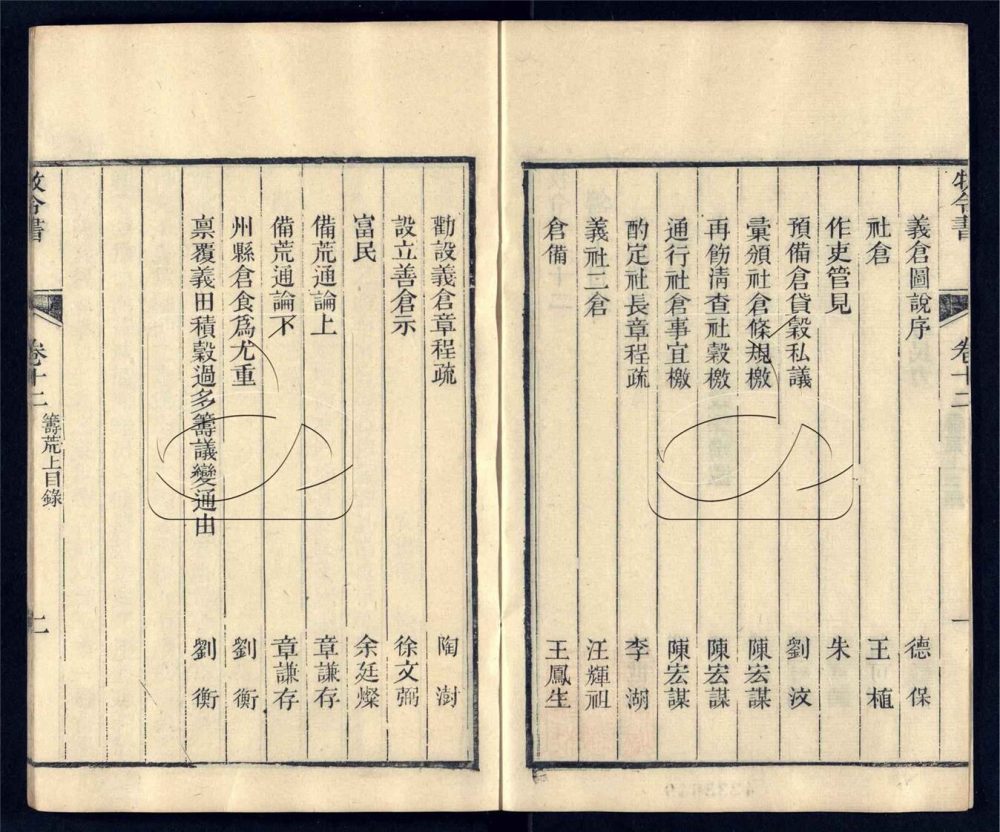 牧令書 卷十二 一
義倉圖說序 德保
社倉 王植
作吏管見 朱
預備倉貸穀私議 劉汶
彙頒社倉條規檄 陳宏謀
再飭清查社穀檄 陳宏謀
通行社倉事宜檄 陳宏謀
酌定社長章程疏 李湖
義社二倉 汪輝祖
倉備 王鳳生
勸設義倉章程疏 陶澍
設立善倉示 徐文弼
富民 余廷燦
備荒通論上 章謙存
備荒通論下 章謙存
州縣倉食爲尤重 劉衡
稟覆義田積穀過多籌議變通由 劉衡
牧令書 卷十二 籌荒上目錄 二